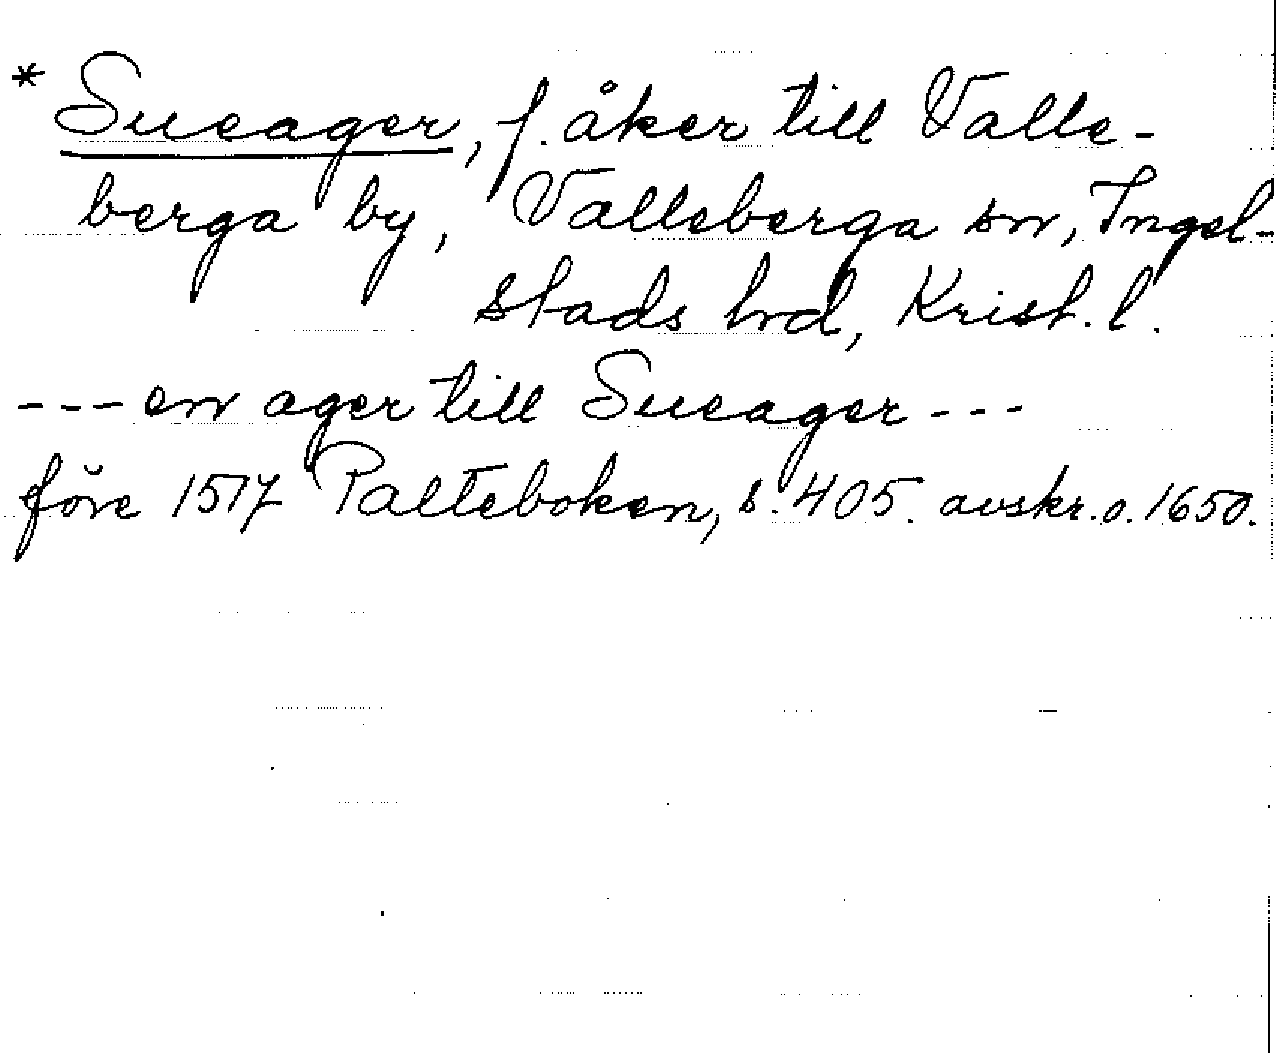 * Sueager, f. åker till Valle-
berga by, Valleberga sn, Ingel-
stads hd, Krist. l.
--- en ager till Sueager ---
före 1517 Palteboken, s. 405. avskr. o. 1650.